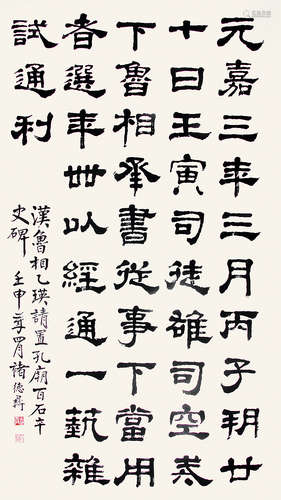 元嘉三年三月丙子朔廿
七日壬寅司徒雄司空戒
下魯相承書從事下當用
者選年卌以經通一藝雜
試通利
漢魯相乙瑛請置孔廟百石卒
史碑 壬申年四月褚德彝